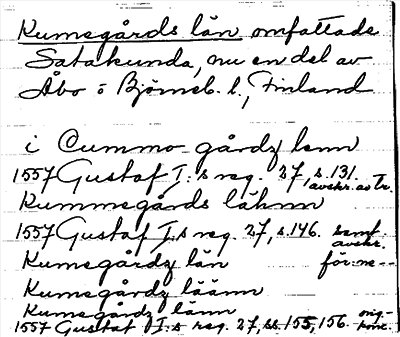 Kumogårds län omfattade
Satakunda, nu en del av
Åbo o Björneb. l., Finland
i Cummo gårdz lenn
1557 Gustaf I:s reg. 27, s. 131. avskr. av Tr.
Kummegårds lähnn
1557 Gustaf I:s reg. 27, s. 146. samt. avskr.
Kumegårdz län för. m--
Kumegårdz läänn
Kumegårdz länn
1557 Gustaf I:s reg. 27, ss. 155, 156. orig- konc.